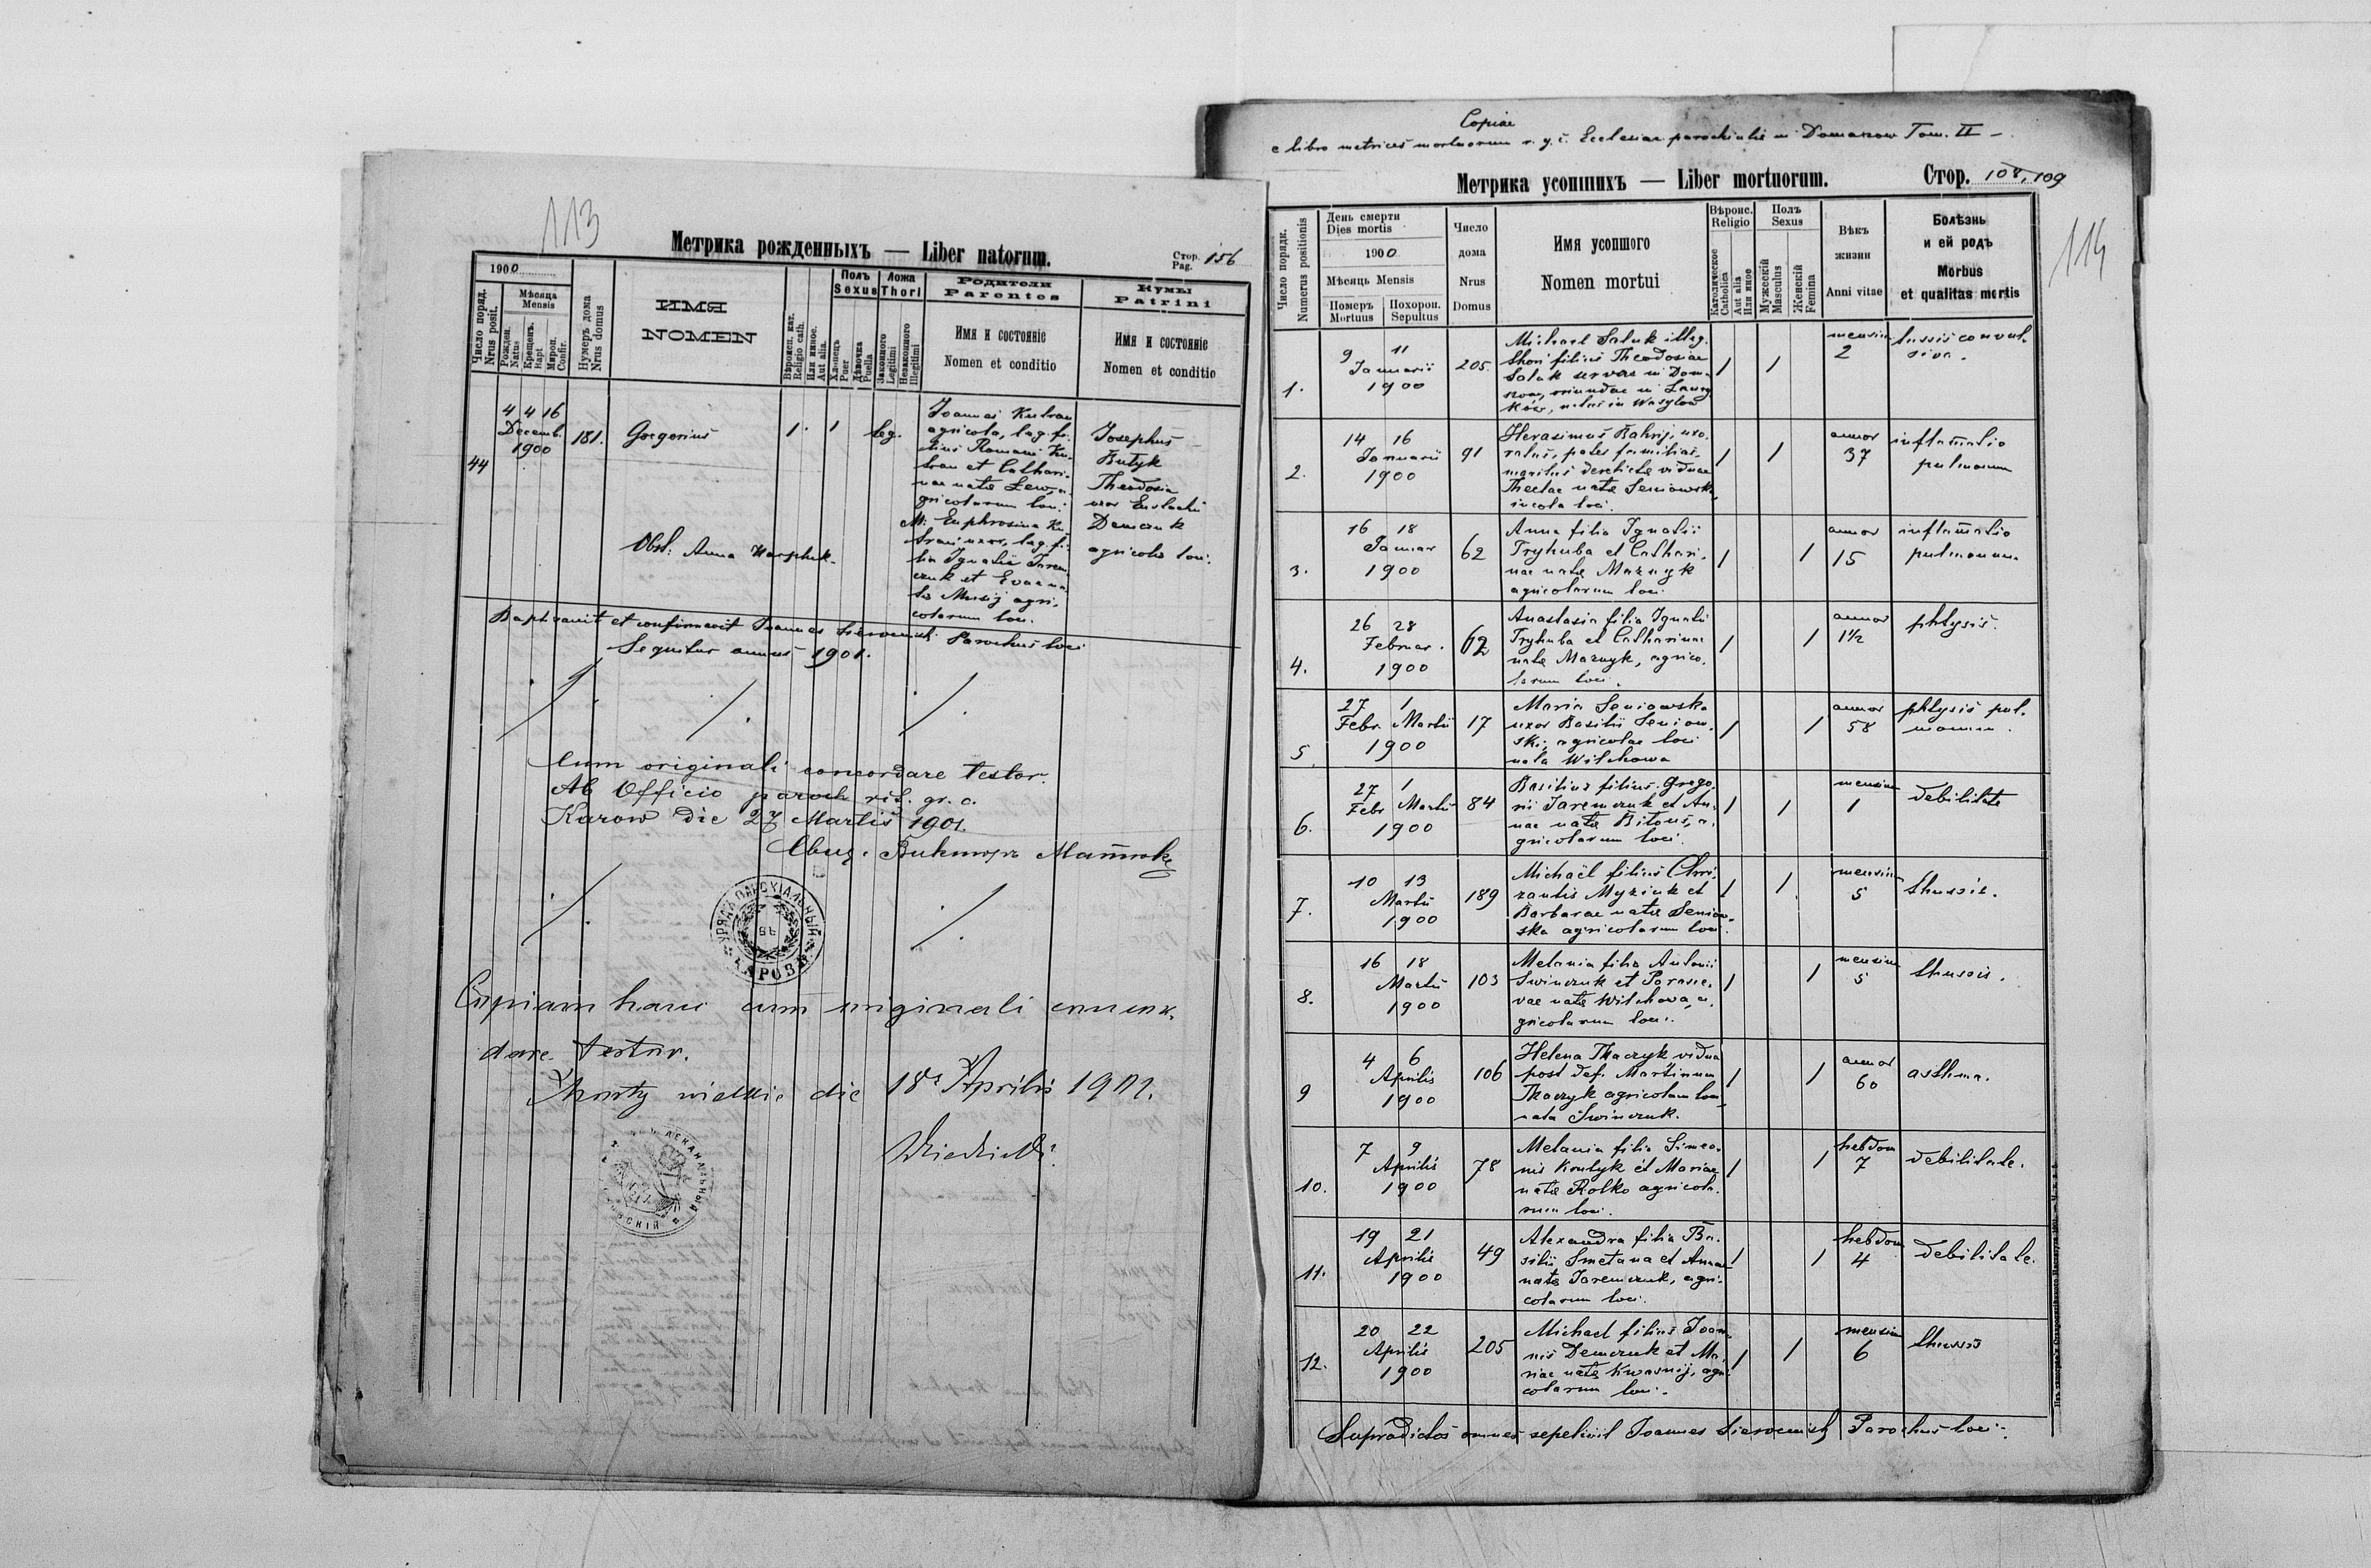 113
Метрика рожденныхъ — Liber natorum.
Стор. Pag. 156
1900
Число поряд. Nrus posit.
Мѣсяца Mensis
Рожден. Natus
Крещенъ. Bapt.
Мѵроп. Confir.
Нумеръ дома Nrus domus
ИМЯ
NOMEN
Вѣроисп. кат. Religio cath.
Или иное. Aut alia.
Полъ Sexus
Хлопецъ Puer
Дѣвочка Puella
Ложа Thori
Законного Legitimi
Незаконного Illegitimi
Родители
Parentes
Имя и состояніе
Nomen et conditio
Кумы
Patrini
Имя и состояніе
Nomen et conditio
44
4 4 16
Decemb.
1900
181.
Gregorius
1. 1 leg.
Joannes Kutran
agricola, leg. fi-
lius Romani Ku-
tran et Cathari-
nae natae Lew, a-
gricolarum loci.
M: Euphrosina Ku-
trani uxor, leg. fi-
lia Ignatii Jarem-
czuk et Evae na-
tae Musij agri-
colarum loci.
Josephus
Butyk
Theodosia
uxor Eustachii
Demczuk
agricolae loci.
Obst: Anna Karpluk.
Baptisavit et confirmavit Joannes Parochus loci
Sequitur annus 1901.
Cum originali concordare testor.
Ab Officio paroch. rit. gr. c.
Karow die 27 Martii 1901.
Свящ. Викторъ Матюкъ
УРЯДЪ ПАРОХІАЛЬНЫЙ КАРОВѢ
Copiam hanc cum originali concor-
dare testor.
die 18. Aprilis 1901.
Copiae
e libro metrices mortuorum r. g. c. Ecclesiae parochialis in Domaszow Tom. II
Метрика усопшихъ — Liber mortuorum.
Стор. 108, 109
114
Число порядк. Numerus positionis
День смерти
Dies mortis
1900
Мѣсяць Mensis
Померъ Mortuus
Похорон. Sepultus
Число
дома
Nrus
Domus
Имя усопшого
Nomen mortui
Вѣроис. Religio
Католическое Catholica
Или иное Aut alia
Полъ Sexus
Мужескій Masculus
Женскій Femina
Вѣкъ
жизни
Anni vitae
Болѣзнь
и ей родъ
Morbus
et qualitas mortis
1.
9 11
Januarii
1900
205.
Michael Saluk illeg.
thori filius Theodosiae
Saluk servae in Doma-
szow, oriundae in Lawry-
ków, natus in Wasylow
1 1
mensium
2
tussis convul-
siva.
2.
14 16
Januarii
1900
91
Herasimus Bahrij, uxo-
ratus, pater familias,
maritus derelictae viduae
Theclae natae Seniowska,
incola loci.
1 1
annor
37
inflamatio
pulmonum
3.
16 18
Januar
1900
62
Anna filia Ignatii
Tryhuba et Cathari-
nae natae Mazuyk
agricolarum loci.
1 1
annor
15
inflamatio
pulmonum
4.
26 28
Februar.
1900
62
Anastasia filia Ignatii
Tryhuba et Catharinae
natae Mazuyk, agrico-
larum loci.
1 1
annor
1½
phtysis.
5.
27 1
Febr. Martii
1900
17
Maria Seniowska
uxor Basilii Seniow-
ski, agricolae loci
nata Wilchowa
1 1
annor
58
phtysis pul-
monum.
6.
27 1
Febr Martii
1900
84
Basilius filius Grego-
rii Jaremczuk et An-
nae natae Bitous, a-
gricolarum loci.
1 1
mensium
1
debilitate
7.
10 13
Martii
1900
189
Michaël filius Chri-
zantis Myziuk et
Barbarae natae Seniow-
ska agricolarum loci.
1 1
mensium
5
thussis.
8.
16 18
Martii
1900
103
Melania filia Antonii
Swinczuk et Parasce-
vae natae Wilchowa, a-
gricolarum loci.
1 1
mensium
5
thussis.
9
4 6
Aprilis
1900
106
Helena Tkaczyk vidua
post def. Martinum
Tkaczyk agricolam loci,
nata Swinczuk.
1 1
annor
60
asthma.
10.
7 9
Aprilis
1900
78
Melania filia Simeo-
nis Koulyk et Mariae
natae Rolko agricola-
rum loci.
1 1
hebdom
7
debilitate.
11.
19 21
Aprilis
1900
49
Alexandra filia Ba-
silii Smetana et Annae
natae Jaremczuk, agri-
colarum loci.
1 1
hebdom
4
debilitate.
12.
20 22
Aprilis
1900
205
Michael filius Joan-
nis Demczuk et Ma-
riae natae Kwasnij, agri-
colarum loci.
1 1
mensium
6
thussis
Supradictos omnes sepelivit Joannes Parochus loci.